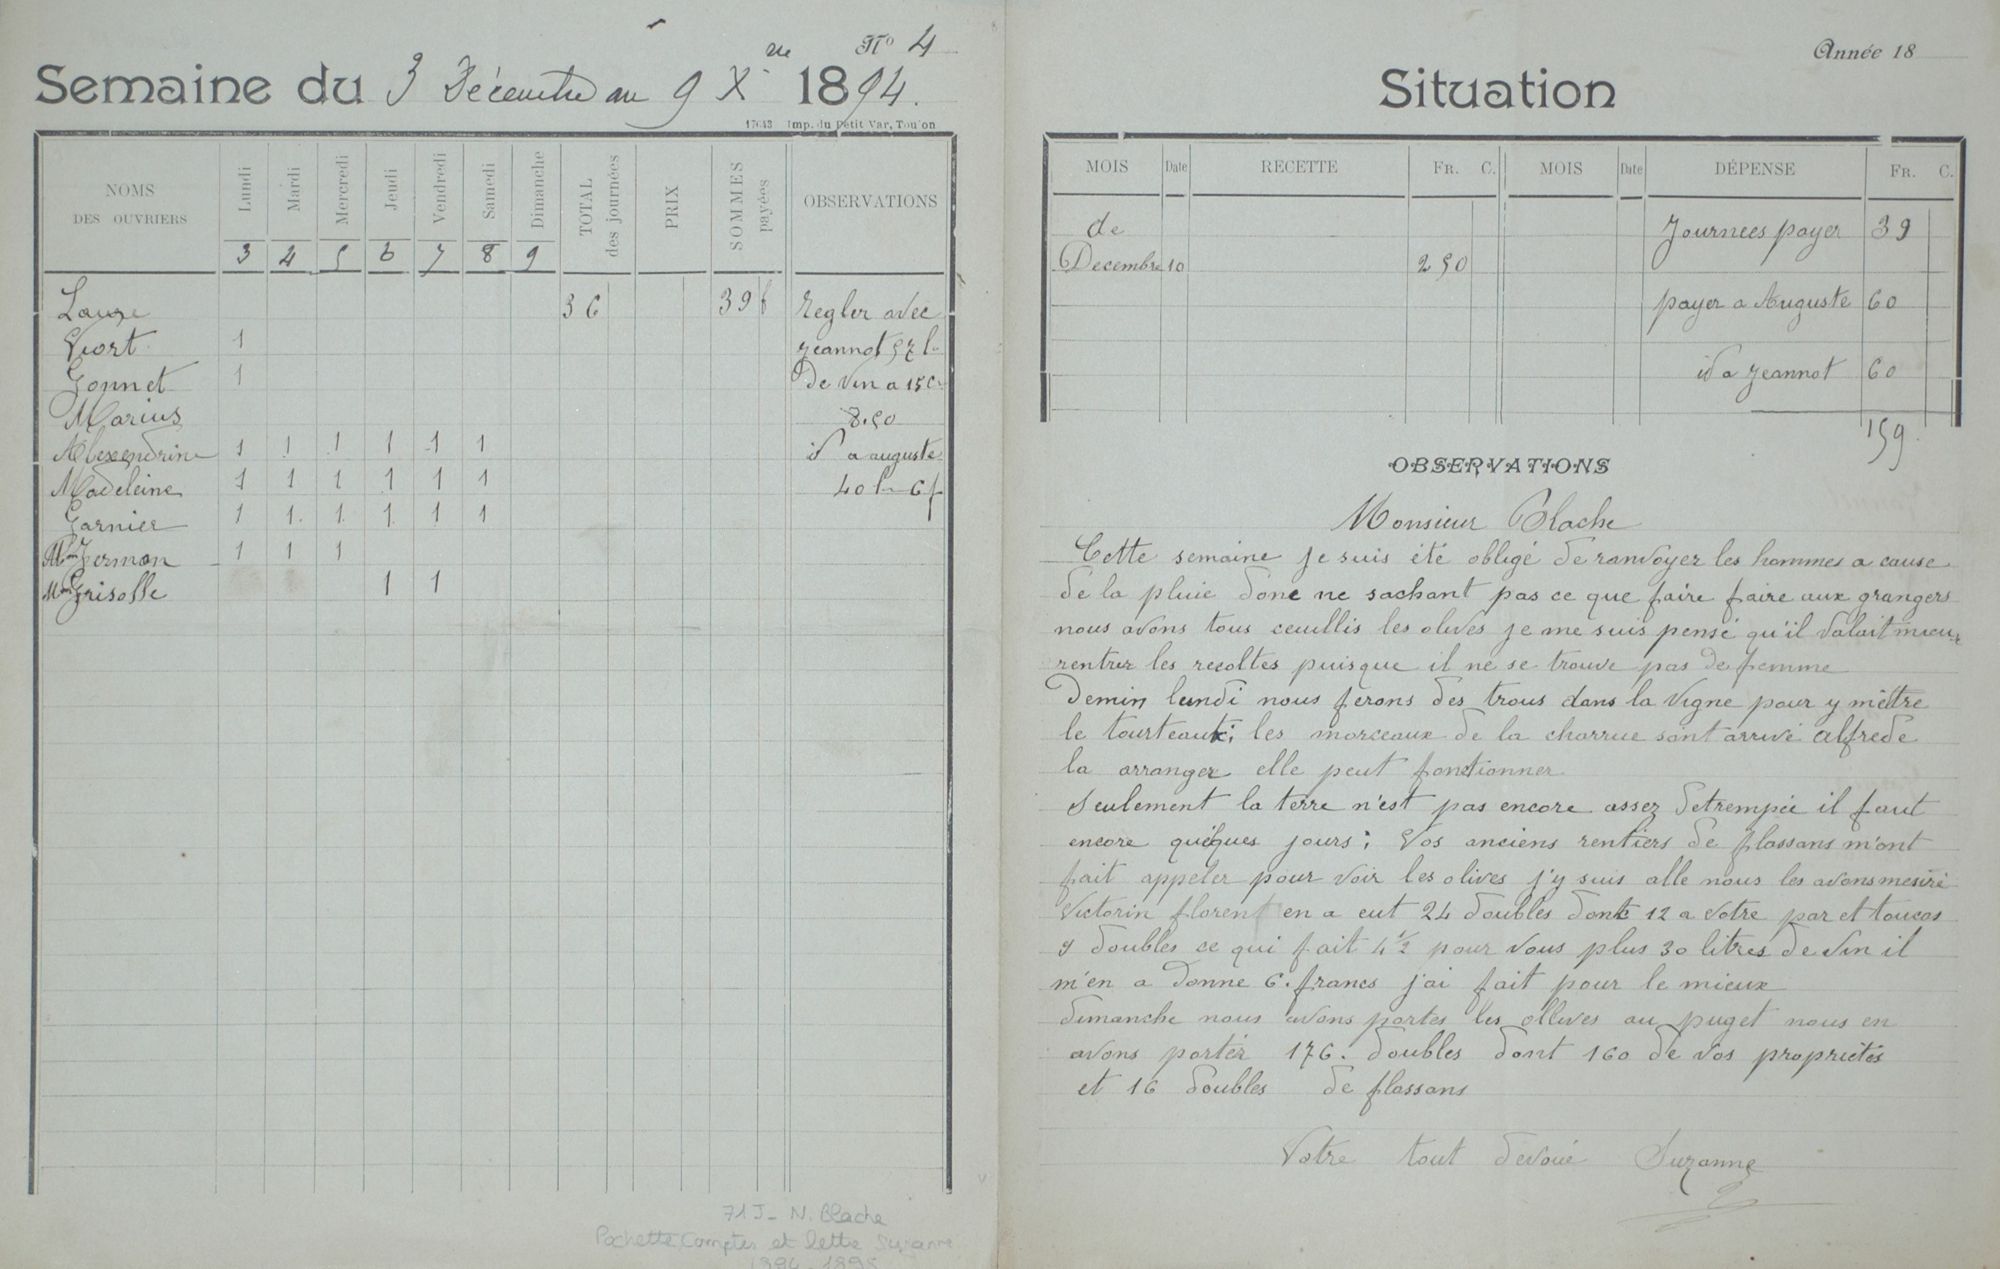 Nº 4
Semaine du 3 Décembre au 9 Xre 1894.
17643 Imp. du Petit Var, Toulon
NOMS DES OUVRIERS Lundi Mardi Mercredi Jeudi Vendredi Samedi Dimanche TOTAL des journées PRIX SOMMES payées OBSERVATIONS
3 4 5 6 7 8 9
Lauze 36 39 f Regler avec
Viort 1 jeannot 57 l.
Gonnet 1 De vin a 15 c.
Marius 8.50
Alexendrine 1 1 1 1 1 1 id a auguste
Madeleine 1 1 1 1 1 1 40 l. 6 f
Garnier 1 1 1 1 1 1
Mme Germon 1 1 1
Mme Grisolle 1 1
71J - N. Blache
Pochette Comptes et lettre Suzanne
1894-1895
Année 18
Situation
MOIS Date RECETTE FR. C. MOIS Date DÉPENSE FR. C.
de Journees payer 39
Decembre 10 250
payer a Auguste 60
id a jeannot 60
159.
OBSERVATIONS
Monsieur Blache
Cette semaine je suis été obligé de ranvoyer les hommes a cause
de la pluie donc ne sachant pas ce que faire faire aux grangers
nous avons tous ceuillis les olives je me suis pensé qu'il valait mieux
rentrer les recoltes puisque il ne se trouve pas de femme
Demin lundi nous ferons des trous dans la vigne pour y mettre
le tourteaux; les morceaux de la charrue sont arrivé alfrede
la arranger elle peut fonctionner.
Seulement la terre n'est pas encore assez detrempée il faut
encore quéques jours; Vos anciens rentiers de flassans m'ont
fait appeler pour voir les olives j'y suis alle nous les avons mesiré
Victorin florent en a eut 24 doubles dont 12 a votre par et toucas
9 doubles ce qui fait 4 1/2 pour vous plus 30 litres de vin il
m'en a donne 6. francs j'ai fait pour le mieux
dimanche nous avons portes les ollives au puget nous en
avons portér 176. doubles dont 160 de vos propriétés
et 16 doubles de flassans
Votre tout devoué Suzanne